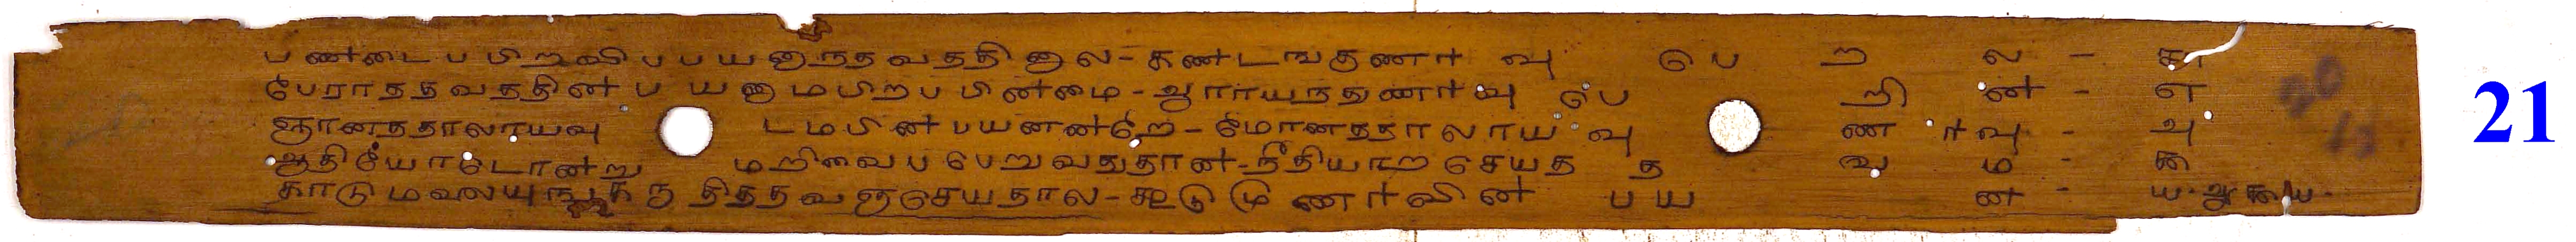 பண்டைபபிறவிபபயனுந்தவத்தினுல-கண்டங்குணர்வு பெறல - கா
பேராதத்வத்தின் பயனும்பிறபபின்மை - ஆராயந்துணர்வு பெறின் - எ
ஞானத்தாலாயவுடமபின் பயனன்றே-மோனத்தாலாயவுணர்வு - அ
ஆதியோடொன்றுமறிவைப பெறுவதுதான்-நீதியாற செயத தவம -
காடுமலையு தித்தவஞசெயதால-கூடுமுணர்வின் பயன -
21